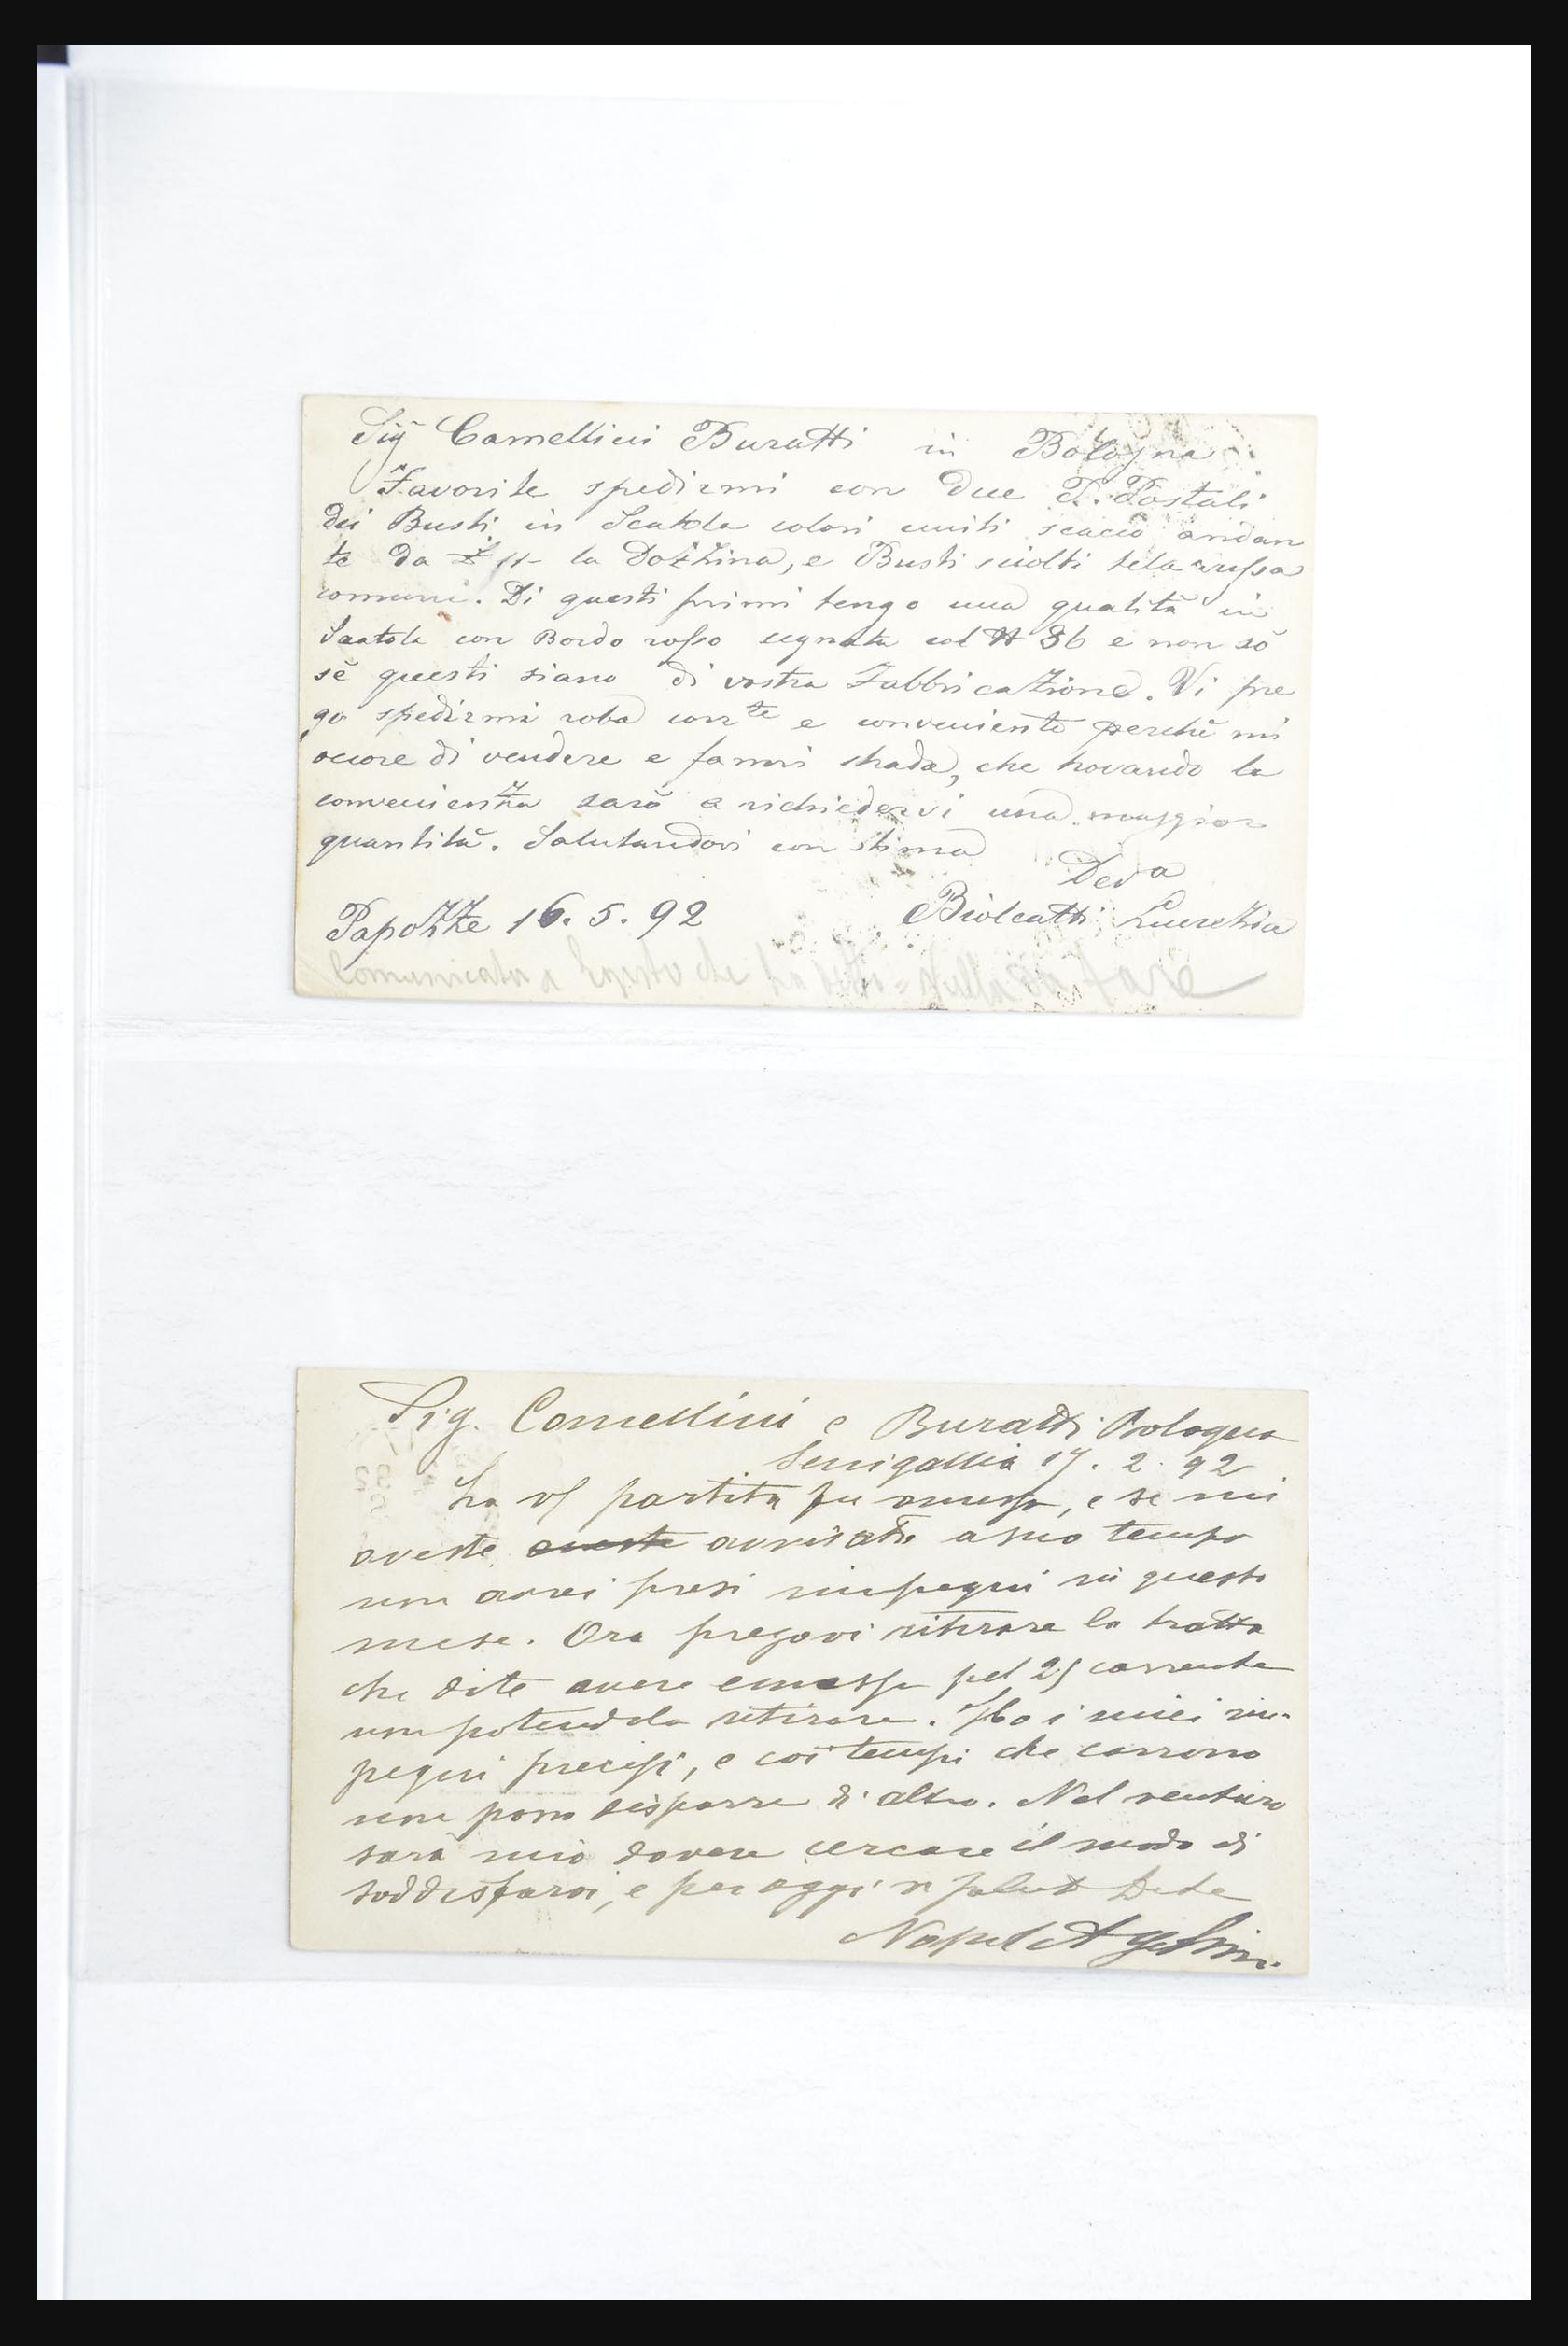 Sig Camellini Buratti in Bologna
Favorite spedirmi con due P. Postali
dei Busti in Scatola colori uniti scacco andan
te da £ 11- la Dozzina, e Busti sciolti tela russa
comuni. Di questi primi tengo una qualità in
Scatola con Bordo rosso segnata col N 36 e non sò
sè questi siano di vostra Fabbricazione. Vi pre
go spedirmi roba corrte e conveniente perchè mi
ocore di vendere e farmi strada, che trovando la
convenienza sarò a richiedervi una maggior
quantità. Salutandovi con stima
Deva
Papozze 16. 5. 92 Biolcatti Lucrezia
Comunicata a che ha detto
Sig. Comellini e Buratti Bologna
Senigallia 17. 2. 92
La vs partita fu omessa, e se mi
aveste avvisato a suo tempo
non avrei presi impegni in questo
mese. Ora pregovi ritirare la tratta
che dite avere emessa pel 25 corrente
non potendola ritirare. Ho i miei im-
pegni precisi, e coi tempi che corrono
non posso disporre di altro. Nel venturo
sarà mio dovere cercare il modo di
soddisfarvi, e per oggi vi saluto
Napol